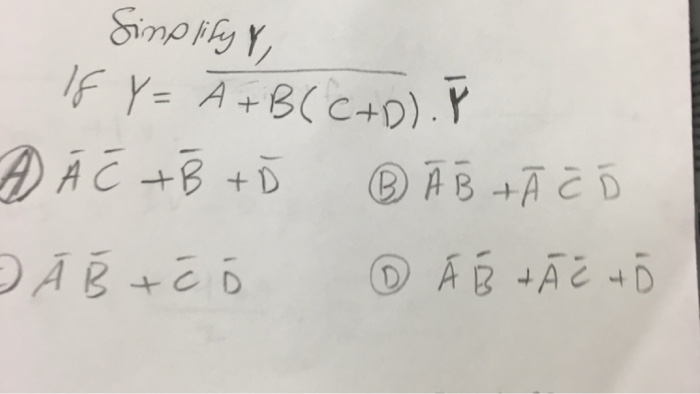 Simplify Y,
If Y = \overline{A + B(C+D)} . Ȳ
Ⓐ Ā C̄ + B̄ + D̄
Ⓑ Ā B̄ + Ā C̄ D̄
Ā B̄ + C̄ D̄
Ⓓ Ā B̄ + Ā C̄ + D̄